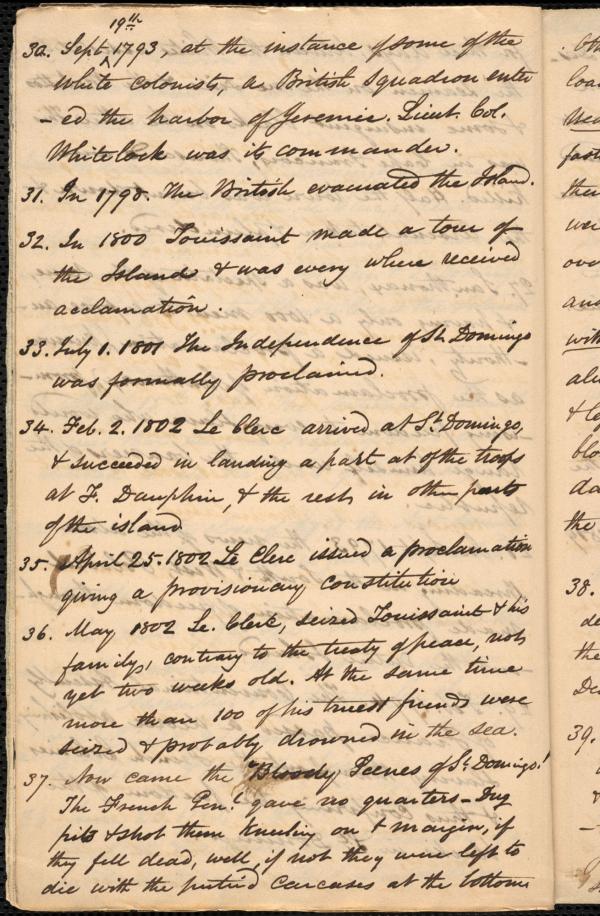 19th
30. Sept. 1793, at the instance of some of the
white colonists, a British squadron enter
-ed the harbor of Jeremie. Lieut. Col.
Whitelock was its commander.
31. In 1798. The British evacuated the Island.
32. In 1800 Touissaint made a tour of
the Island & was every where received
acclamation.
33. July 1. 1801 The Independence of St. Domingo
was formally proclaimed.
34. Feb. 2. 1802 Le Clerc arrived at St. Domingo,
& succeeded in landing a part at of the troops
at F. Dauphin, & the rest, in other parts
of the island
35. April 25. 1802 Le Clerc issued a proclamation
giving a provisionary constitution
36. May 1802 Le. Clerc, seized Touissaint & his
family, contrary to the treaty of peace, not
yet two weeks old. At the same time
more than 100 of his truest friends were
seized & probably drowned in the sea.
37. Now came the "Bloody Scenes of St. Domingo!
The French Genl. gave no quarters - Dug
pits & shot them kneeling on t margin, if
they fell dead, well, if not they were left to
die with the putrid carcases at the bottom
38.
39.